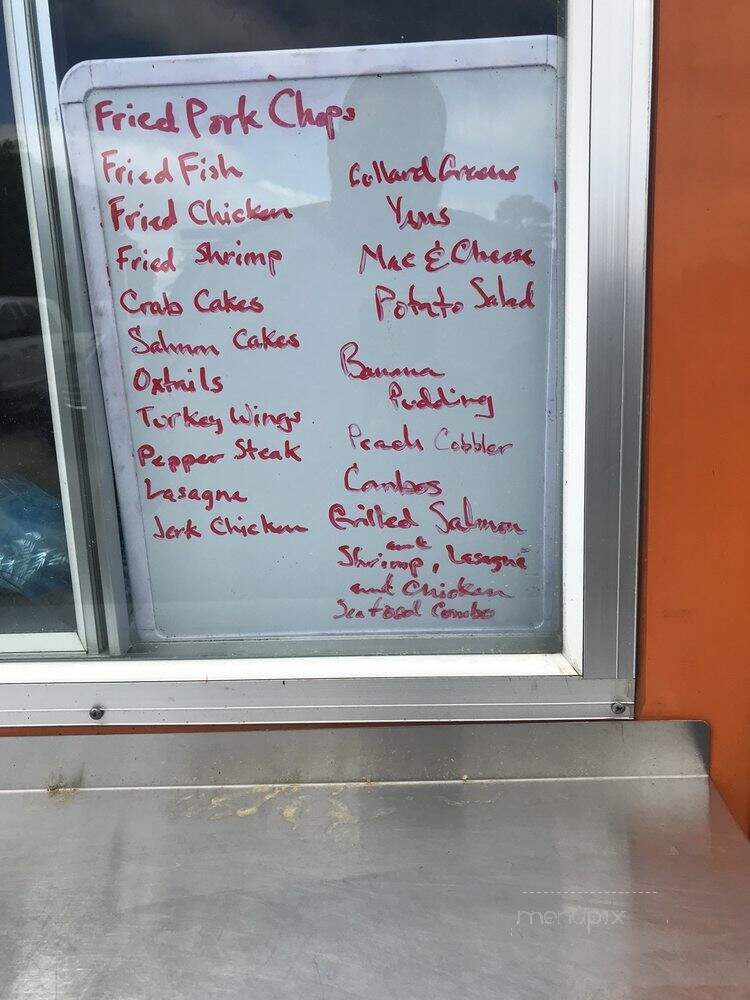 Fried Pork Chops
Fried Fish
Fried Chicken
Fried Shrimp
Crab Cakes
Salmon Cakes
Oxtails
Turkey Wings
Pepper Steak
Lasagna
Jerk Chicken
Collard Greens
Yams
Mac & Cheese
Potato Salad
Banana
Pudding
Peach Cobbler
Combos
Grilled Salmon
and
Shrimp, Lasagne
and Chicken
Seafood Combo
menupix